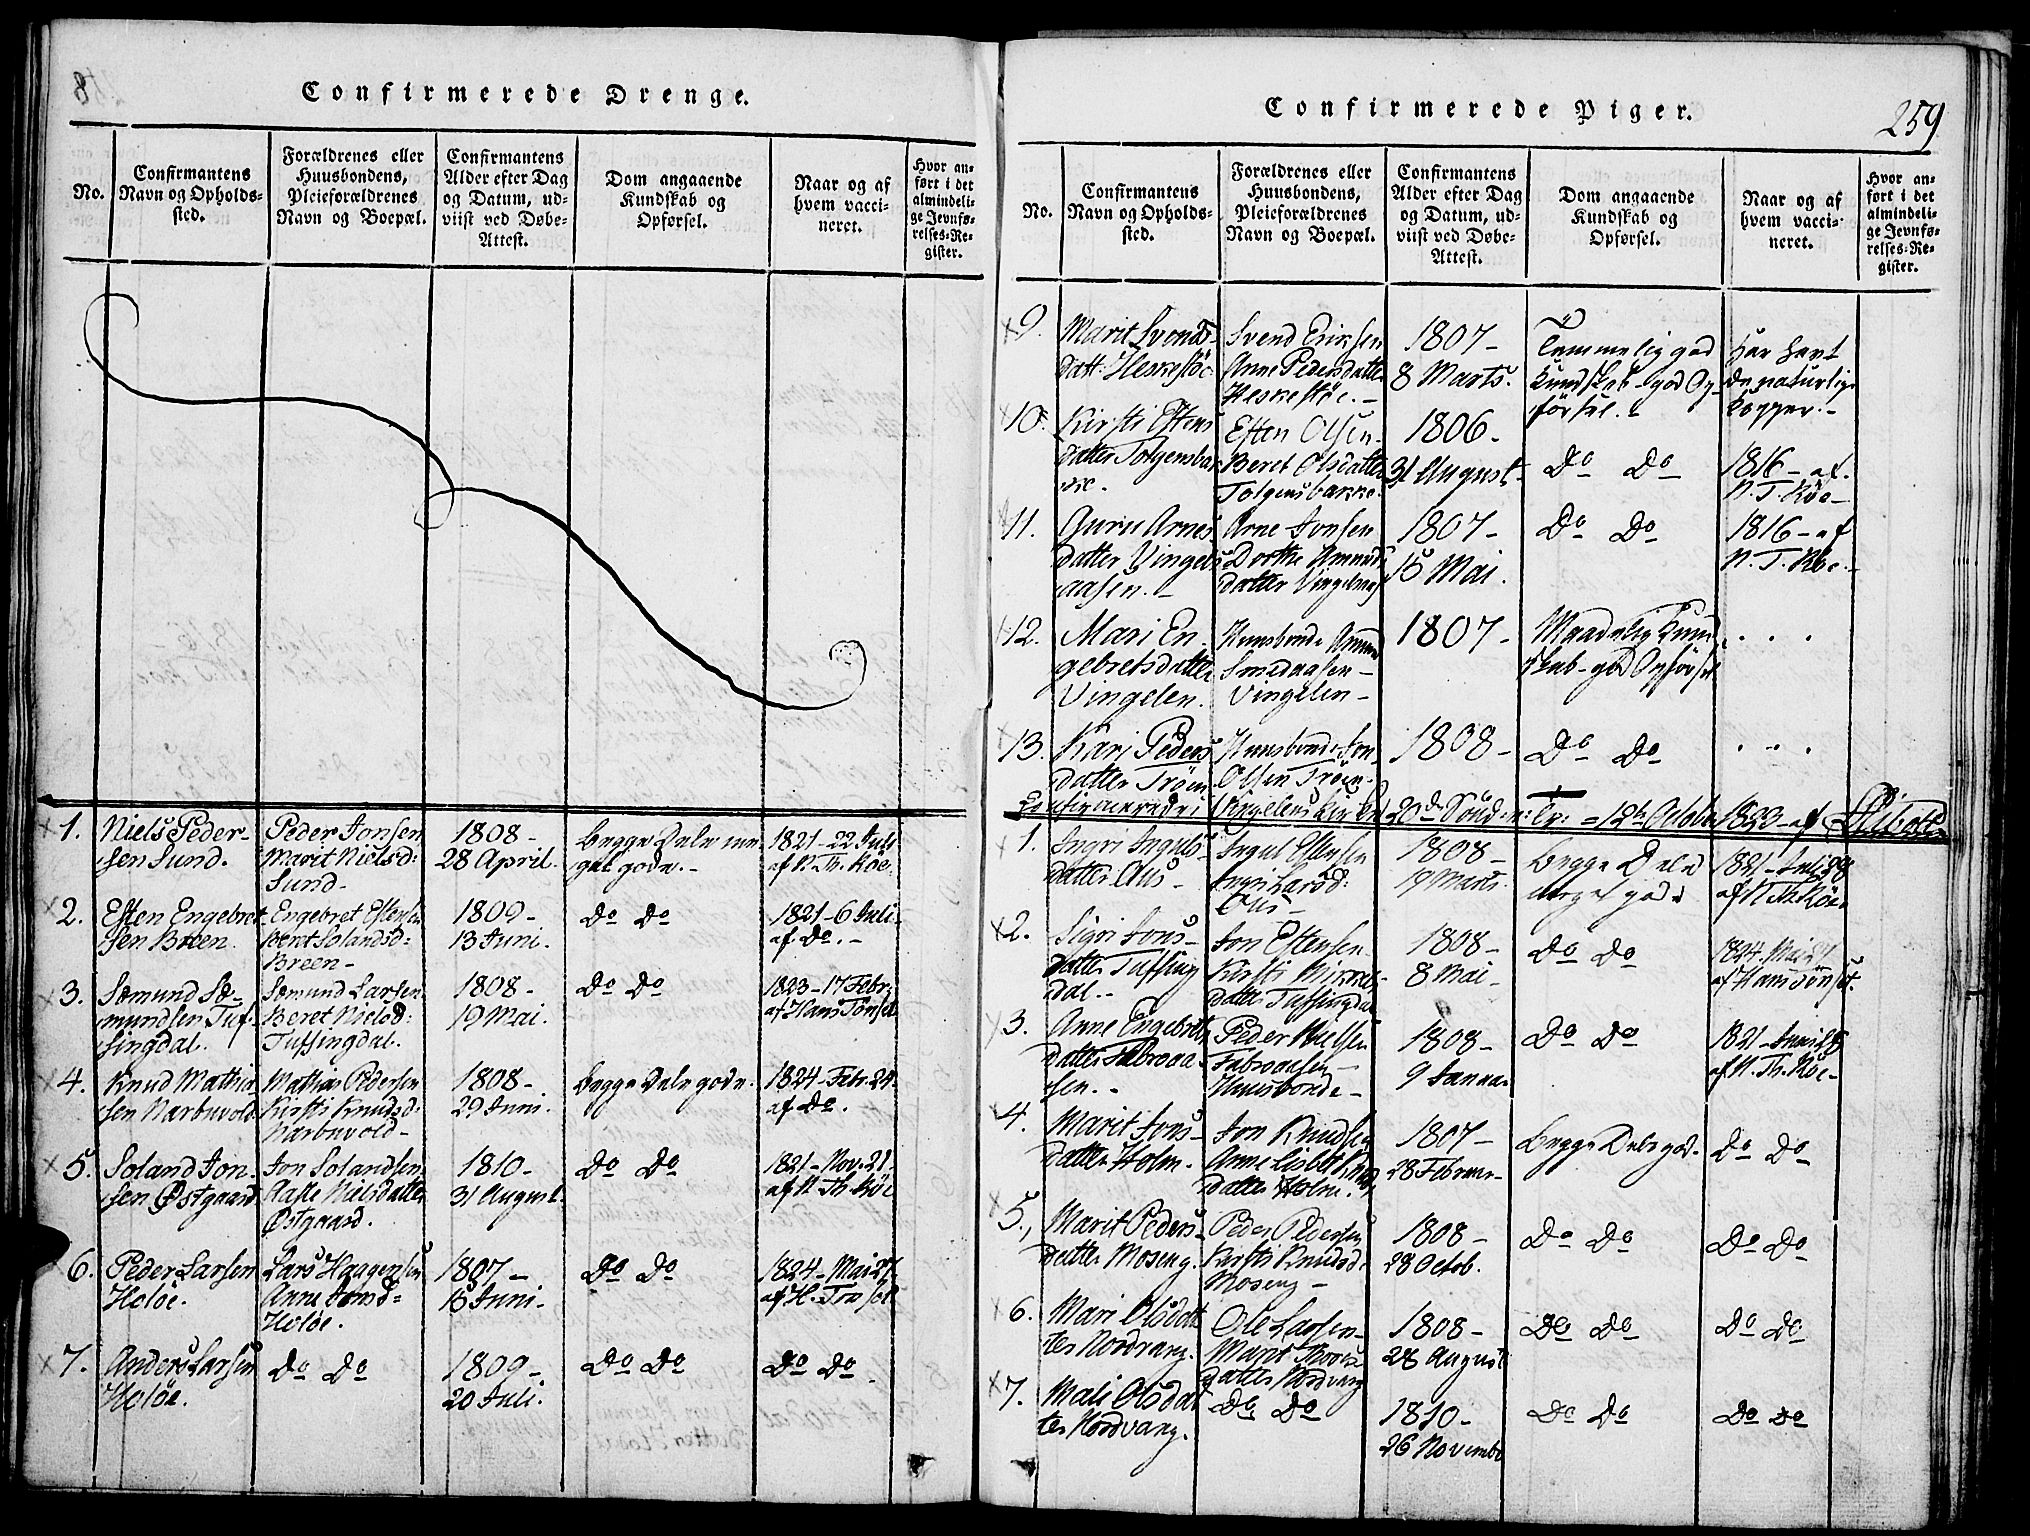 8
Confirmerede Drenge.
No.
Confirmantens
Navn og Opholds-
sted.
Forældrenes eller
Huusbondens,
Pleieforældrenes
Navn og Boepæl.
Confirmantens
Alder efter Dag
og Datum, ud-
viist ved Døbe-
Attest.
Dom angaaende
Kundskab og
Opførsel.
Naar og af
hvem vacci-
neret.
Hvor an-
ført i det
almindeli-
ge Jevnfø-
relses-Re-
gister.
1.
Niels Peder-
sen Sund.
Peder Jonsen
Marit Nielsd:
Sund-
1808-
28 April.
begge Dele me-
get gode.-
1821-22 Juli
af N. Th. Röe.
2.
Esten Engebret-
sen Breen.
Engebret Estensen
Berit Solandsd:
Breen-
1809-
13 Juni.
Do Do
1821-6 Juli-
af Do.-
3.
Sæmund Sæ-
mundsen Tuf-
singdal.
Sæmund Larsen
Beret Nielsd:
Tufsingdal.
1808-
19 Mai.
Do Do
1823-17 Febr.
af Hans Tönset
4.
Knud Mathia-
sen Narbuvold.
Mathias Pedersen
Kirsti Knudsd:
Narbuvold-
1808-
29 Juni.
begge Dele gode.
1824-Febr. 24.
af Do.
5.
Soland Jon-
sen Østgaard.
Jon Solandsen
Aaste Nielsdatter
Østgaard.
1810-
31 August.
Do Do
1821-Nov. 21-
af N. Th. Röe
6.
Peder Larsen
Holöe.
Lars Haagensen
Anne Jonsd=
Holöe.
1807-
15 Juni.
Do Do
1824-Mai 27.
af H. Tönset
7.
Anders Larsen
Holöe.
Do Do
1809-
20 Juli.
Do Do
Do Do
259
Confirmerede Piger.
No.
Confirmantens
Navn og Opholds-
sted.
Forældrenes eller
Huusbondens,
Pleieforældrenes
Navn og Boepæl.
Confirmantens
Alder efter Dag
og Datum, ud-
viist ved Døbe-
Attest.
Dom angaaende
Kundskab og
Opførsel.
Naar og af
hvem vacci-
neret.
Hvor an-
ført i det
almindeli-
ge Jevnfø-
relses-Re-
gister.
9.
Marit Svends-
datt: Heskestöe
Svend Eriksen
Anne Pedersdatter
Heskestöe.-
1807-
8 Marts.
Temmelig god
Kundskab-god Op-
försel.-
Har havt
de naturlige
Kopper.-
10.
Kirsti Estens
datter Tolgensbak
ke.
Esten Olsen-
Beret Olsdatter
Tolgensbakke.
1806-
31 August-
Do Do
1816- af.
N. T. Röe-
11.
Guru Arnes
datter Vingels
aasen.-
Arne Jonsen
Dorthe Amunds
datter Vingelsaas
1807-
15 Mai.
Do Do
1816- af
N. T. Röe.-
12.
Mari En-
gebretsdatter
Vingelen.
Huusbonde Amund
Smedaasen-
Vingelen-
1807-
Maadelig Kund
skab-god Opförsel
. . .
13.
Kari Peders
datter Tröen
Huusbonde Jon
Olsen Tröen.
1808-
Do Do
. . .
Confirmerede i Vingelens Kirke 20de Sönd: e: Tr: =12te October 1823-af
1.
Ingri Inguls-
datter Aus-
Ingul Estensen
Ingri Larsd:
Aus-
1808-
19 Marts.
begge Dele
meget gode
1821-Juli 22
af N. Th. Röe
2.
Sigri Jons-
datter Tufsing
dal.-
Jon Estensen
Kirsti Mikkels-
datter Tufsingdal
1808-
8 Mai-
Do Do
1824-Mai 27
af Hans Tönset.
3.
Anne Engebrets
datter Fabroaa-
sen.-
Peder Nielsen
Fabroaasen-
Huusbonde-
1808-
9 Januar
Do Do
1821-Juni
af N. Th. Röe-
4.
Marit Jons-
datter Holm.
Jon Knudsen
Anne Lisbet Knuds
datter Holm.
1807-
28 Februar-
begge Dele god.
Do Do
5.,
Marit Peders-
datter Moseng.
Peder Pedersen
Kirsti Knudsd:
Moseng-
1808-
28 Octob.
Do Do
Do Do
6.
Mari Olsdat
ter Nordvang.
Ole Larsen-
Marit
datter Nordvang
1808-
28 August
Do Do
Do Do
7.
Mali Olsdat
ter Nordvang.
Do Do
1810-
26 Novembr
Do Do
Do Do